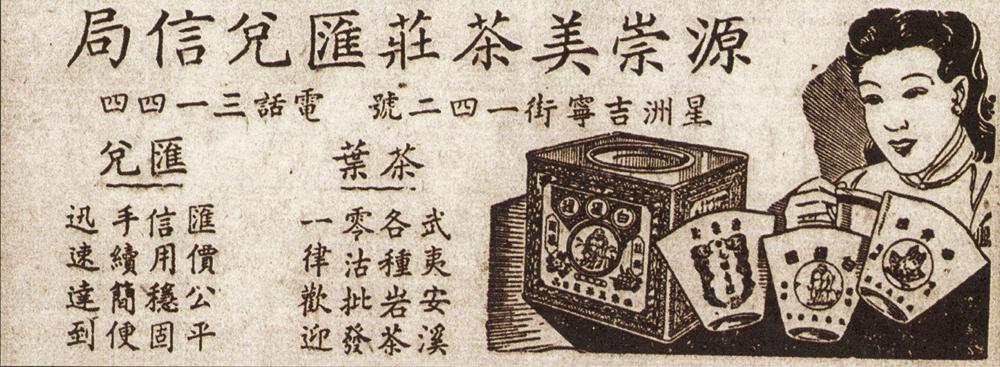 源崇美茶莊匯兌信局
星洲吉寧街一四二號 電話三一四四
茶葉
武夷安溪
各種岩茶
零沽批發
一律歡迎
匯兌
匯價公平
信用穩固
手續簡便
迅速達到